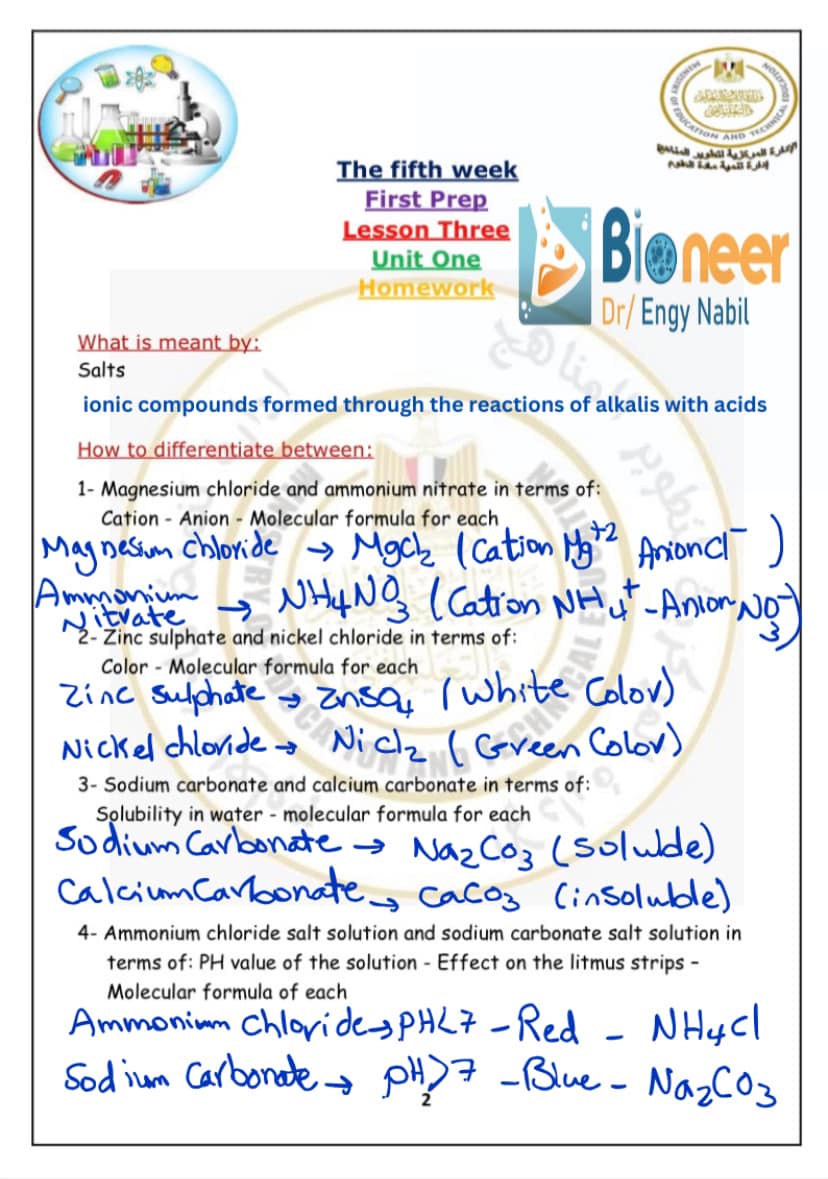 MINISTRY OF EDUCATION AND TECHNICAL EDUCATION
الإدارة المركزية لتطوير المناهج
إدارة تنمية مادة العلوم
The fifth week
First Prep
Lesson Three
Unit One
Homework
Bioneer
Dr/ Engy Nabil
What is meant by:
Salts
ionic compounds formed through the reactions of alkalis with acids
How to differentiate between:
1- Magnesium chloride and ammonium nitrate in terms of:
Cation - Anion - Molecular formula for each
Magnesium chloride → MgCl₂ (Cation Mg⁺² Anion Cl⁻ )
Ammonium
Nitrate → NH₄NO₃ (Cation NH₄⁺ - Anion NO₃⁻)
2- Zinc sulphate and nickel chloride in terms of:
Color - Molecular formula for each
Zinc Sulphate → ZnSO₄ (White Color)
Nickel chloride → NiCl₂ (Green Color)
3- Sodium carbonate and calcium carbonate in terms of:
Solubility in water - molecular formula for each
Sodium Carbonate → Na₂CO₃ (Soluble)
Calcium Carbonate → CaCO₃ (insoluble)
4- Ammonium chloride salt solution and sodium carbonate salt solution in
terms of: PH value of the solution - Effect on the litmus strips -
Molecular formula of each
Ammonium Chloride → PH<7 - Red - NH₄Cl
Sodium Carbonate → PH>7 - Blue - Na₂CO₃
2